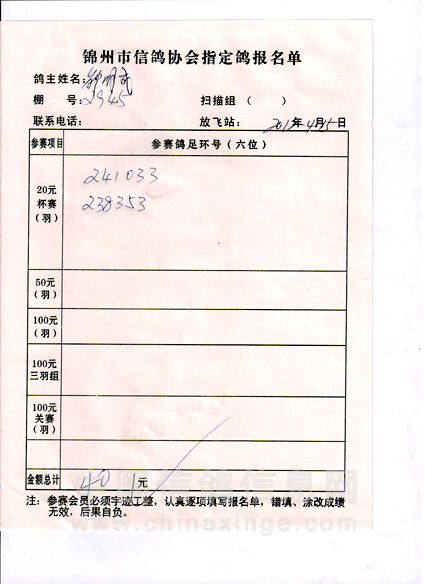 锦州市信鸽协会指定鸽报名单
鸽主姓名:
棚 号:2945 扫描组( )
联系电话: 放飞站: 2019年4月15日
参赛项目 参赛鸽足环号(六位)
20元
杯赛
(羽)
241033
238353
50元
(羽)
100元
(羽)
100元
三羽组
100元
关赛
(羽)
金额总计 40 元
注:参赛会员必须字迹工整,认真逐项填写报名单,错填、涂改成绩
无效,后果自负。
中国信鸽信息网
www.chinaxinge.com